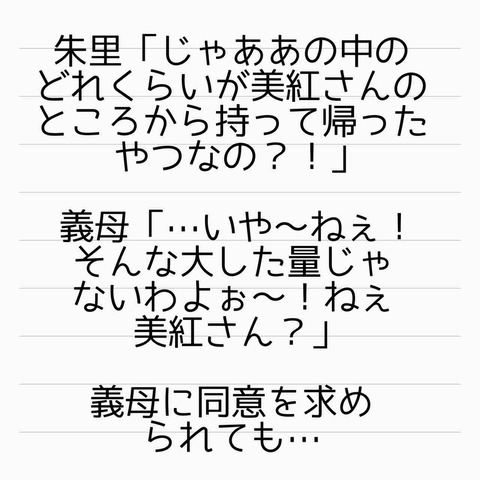 朱里「じゃああの中の
どれくらいが美紅さんの
ところから持って帰った
やつなの？！」
義母「…いや～ねぇ！
そんな大した量じゃ
ないわよぉ～！ねぇ
美紅さん？」
義母に同意を求め
られても…